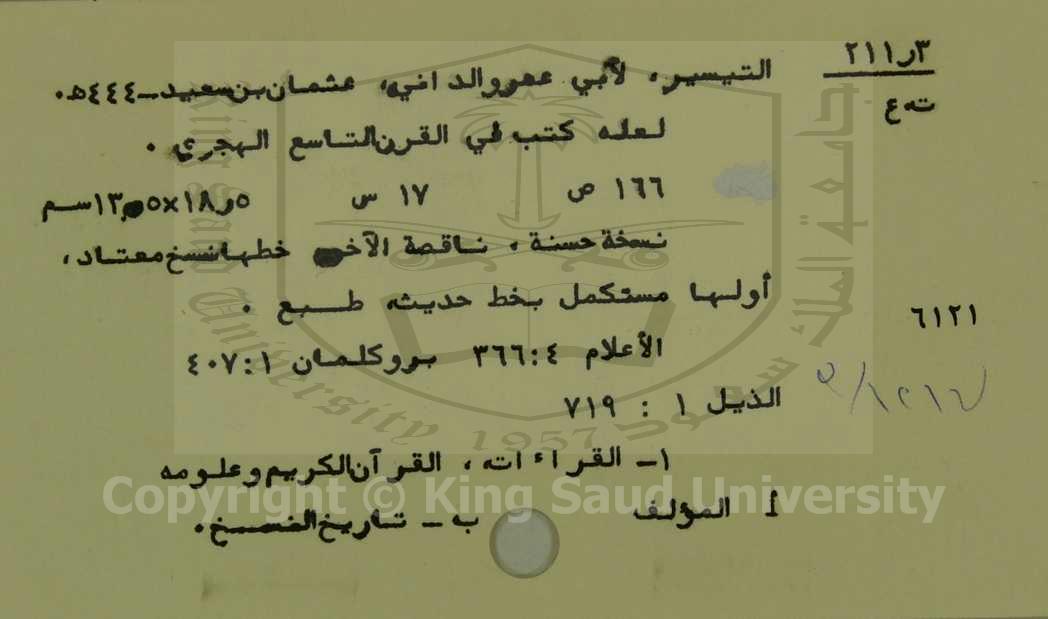 ٢١١٫٣
ت٠ع
التيسير، لأبي عمرو الداني، عثمان بن سعيد ــ ٤٤٤هـ.
لعله كتب في القرن التاسع الهجري .
١٦٦ ص ١٧ س ١٨٫٥×١٣٫٥سم
نسخة حسنة، ناقصة الآخر خطها نسخ معتاد،
أولها مستكمل بخط حديث، طبع .
٦١٢١
الأعلام ٤:٣٦٦ بروكلمان ١:٤٠٧
الذيل ١ : ٧١٩
١ــ القراءات، القرآن الكريم وعلومه
أ المؤلف ب ــ تاريخ النسخ.
جامعة الملك سعود
King Saud University 1957
Copyright © King Saud University